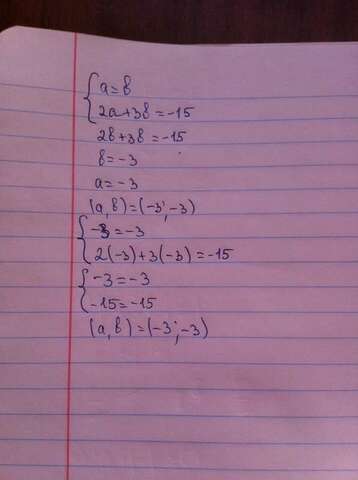 { a = b
2a + 3b = -15
2b + 3b = -15
b = -3
a = -3
(a, b) = (-3; -3)
{ -3 = -3
2(-3) + 3(-3) = -15
{ -3 = -3
-15 = -15
(a, b) = (-3; -3)